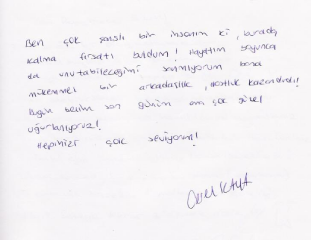 Ben çok şanslı bir insanım ki, burada
kalma fırsatı buldum! Hayatım boyunca
da unutabileceğimi sanmıyorum bana
mükemmel bir arkadaşlık, dostluk kazandırdı!
Bugün benim son günüm ama çok güzel
uğurlanıyoruz!
Hepinizi çok seviyorum!